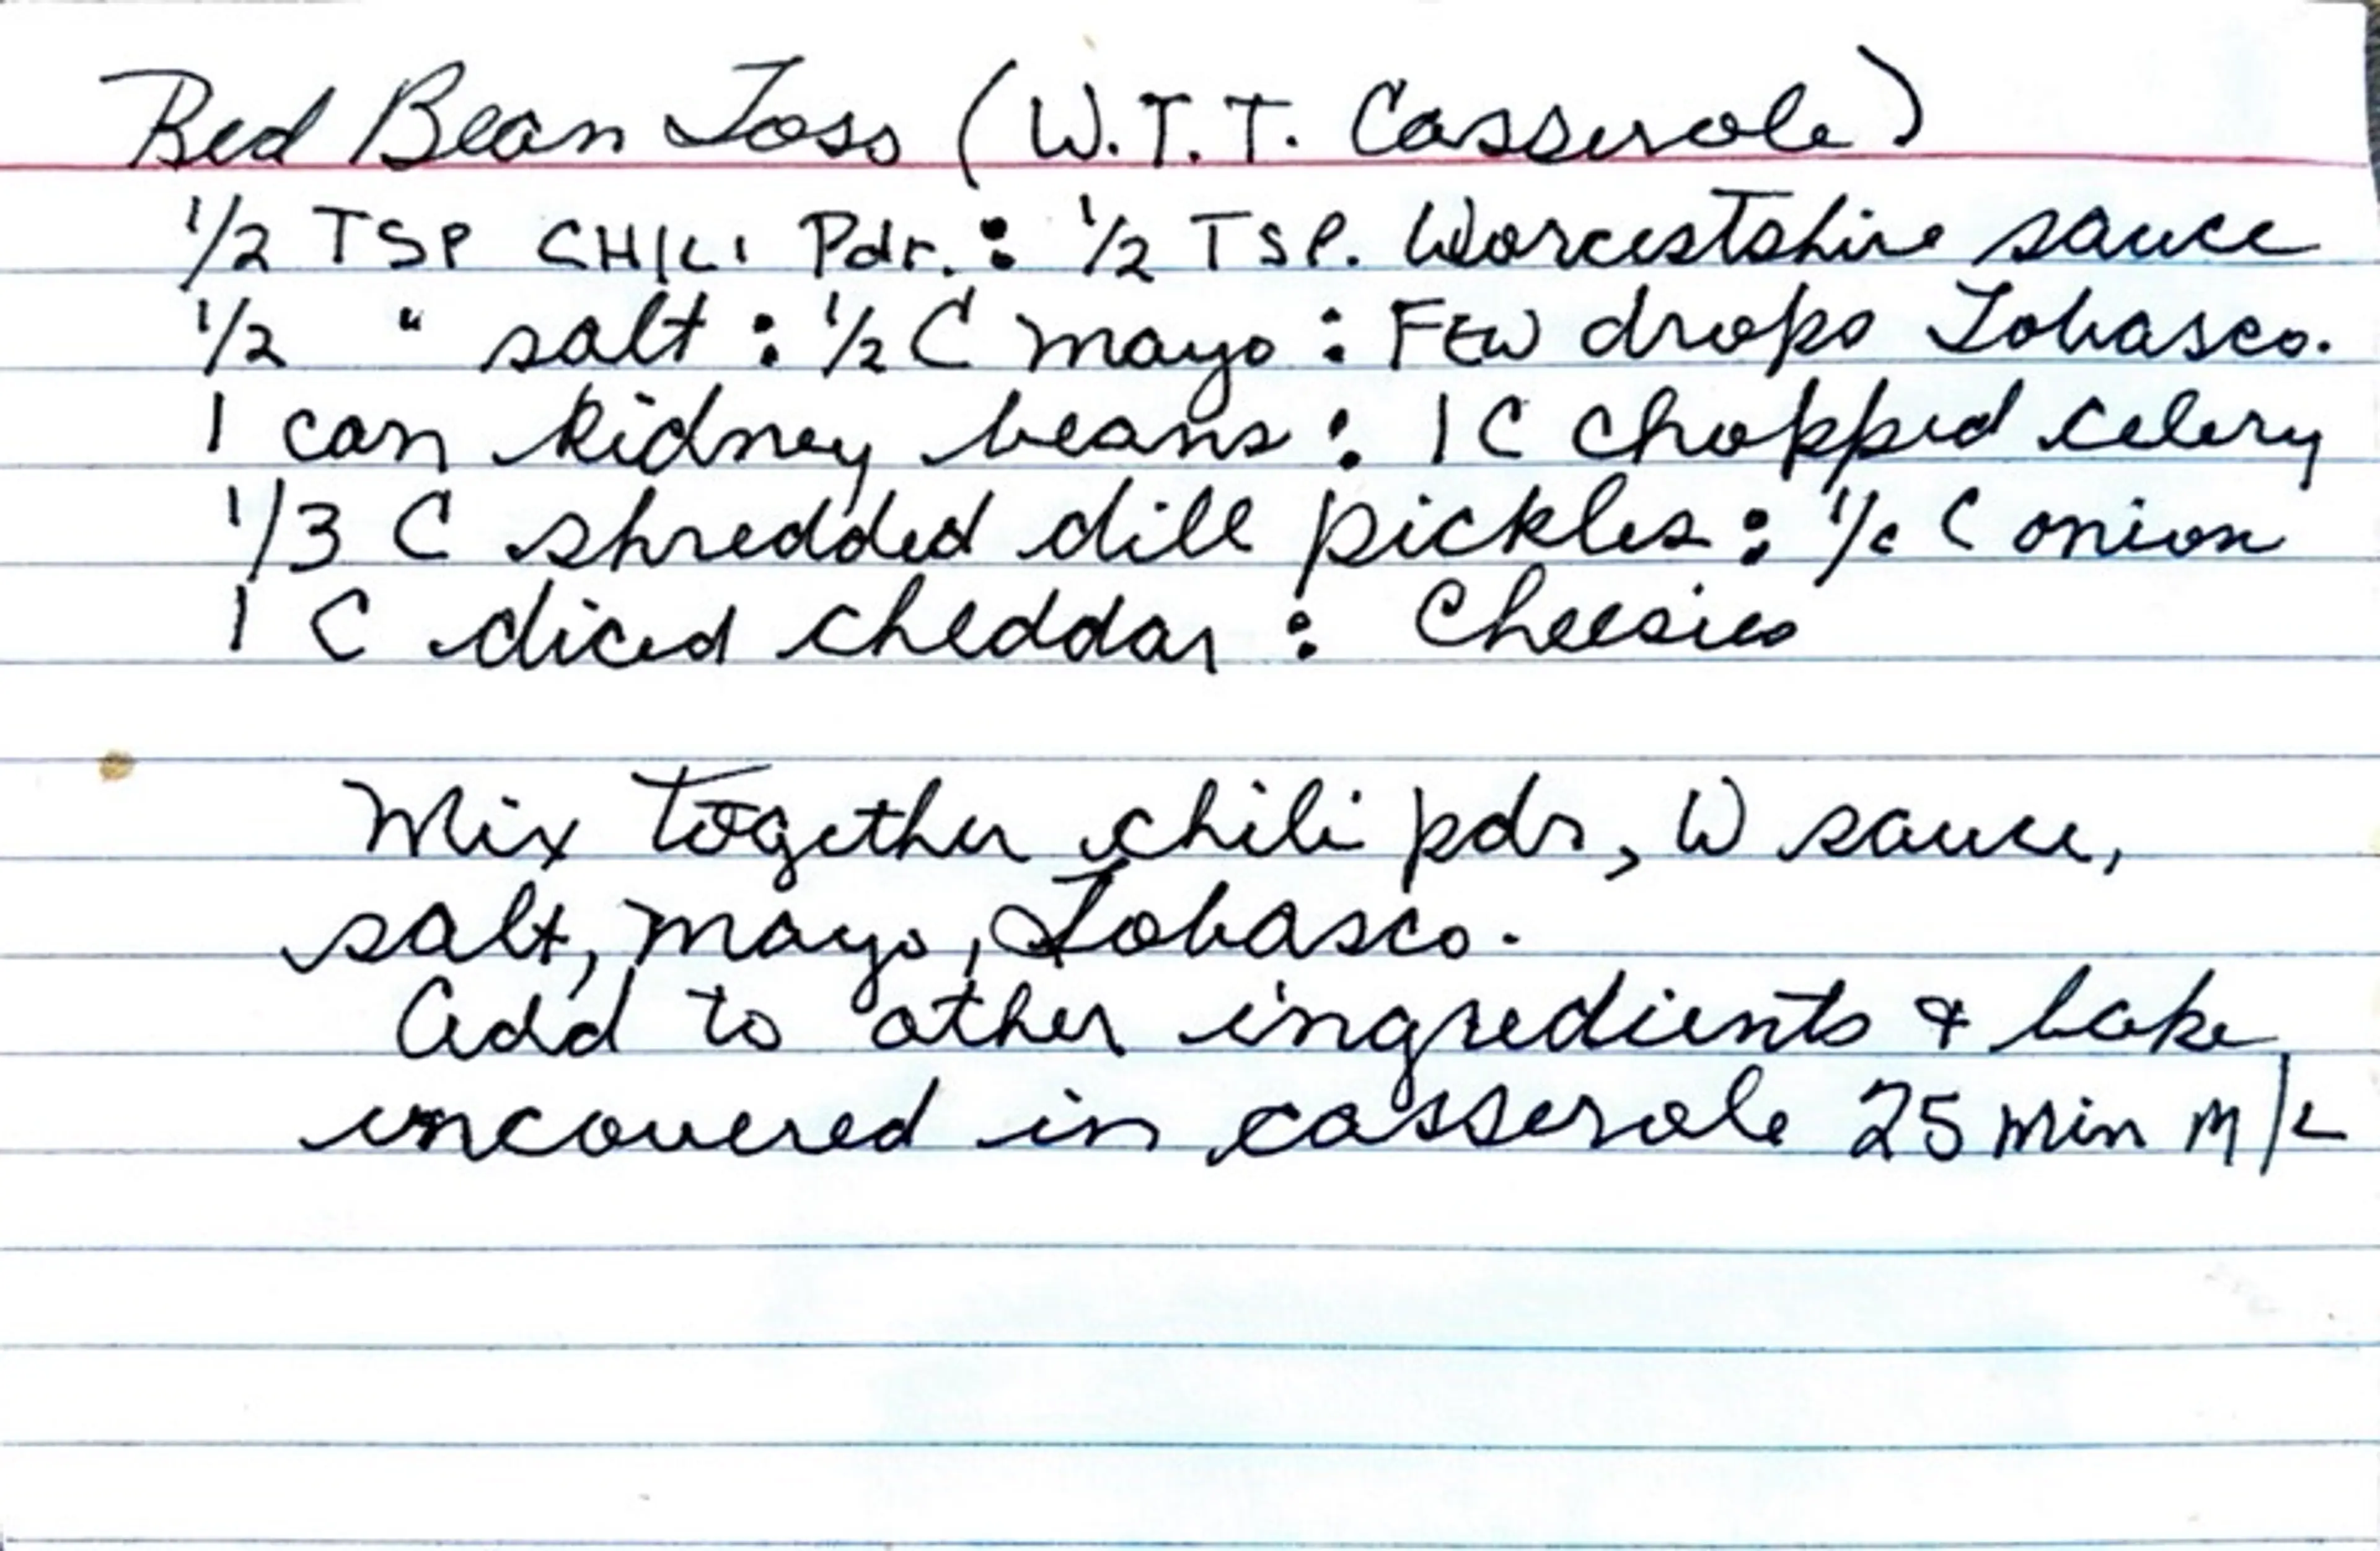 Red Bean Toss (W.T.T. Casserole)
1/2 TSP CHILI Pdr. : 1/2 TSP. Worcestshire sauce
1/2 " salt : 1/2 C mayo : FEW drops Tobasco.
1 can kidney beans : 1 C chopped celery
1/3 C shredded dill pickles : C onion
1 C diced cheddar : Cheesies
Mix together chili pdr, W sauce,
salt, mayo, Tobasco.
Add to other ingredients & bake
uncovered in casserole 25 min M/L